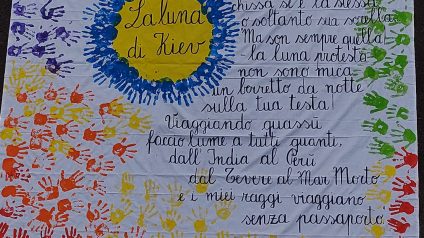 La luna
di Kiev
chissà se è la stessa
o soltanto sua sorella
Ma son sempre quella
- la luna protesta
non sono mica
un berretto da notte
sulla tua testa!
Viaggiando quassù
faccio lume a tutti quanti,
dall'India al Perù
dal Tevere al Mar Morto
e i miei raggi viaggiano
senza passaporto.